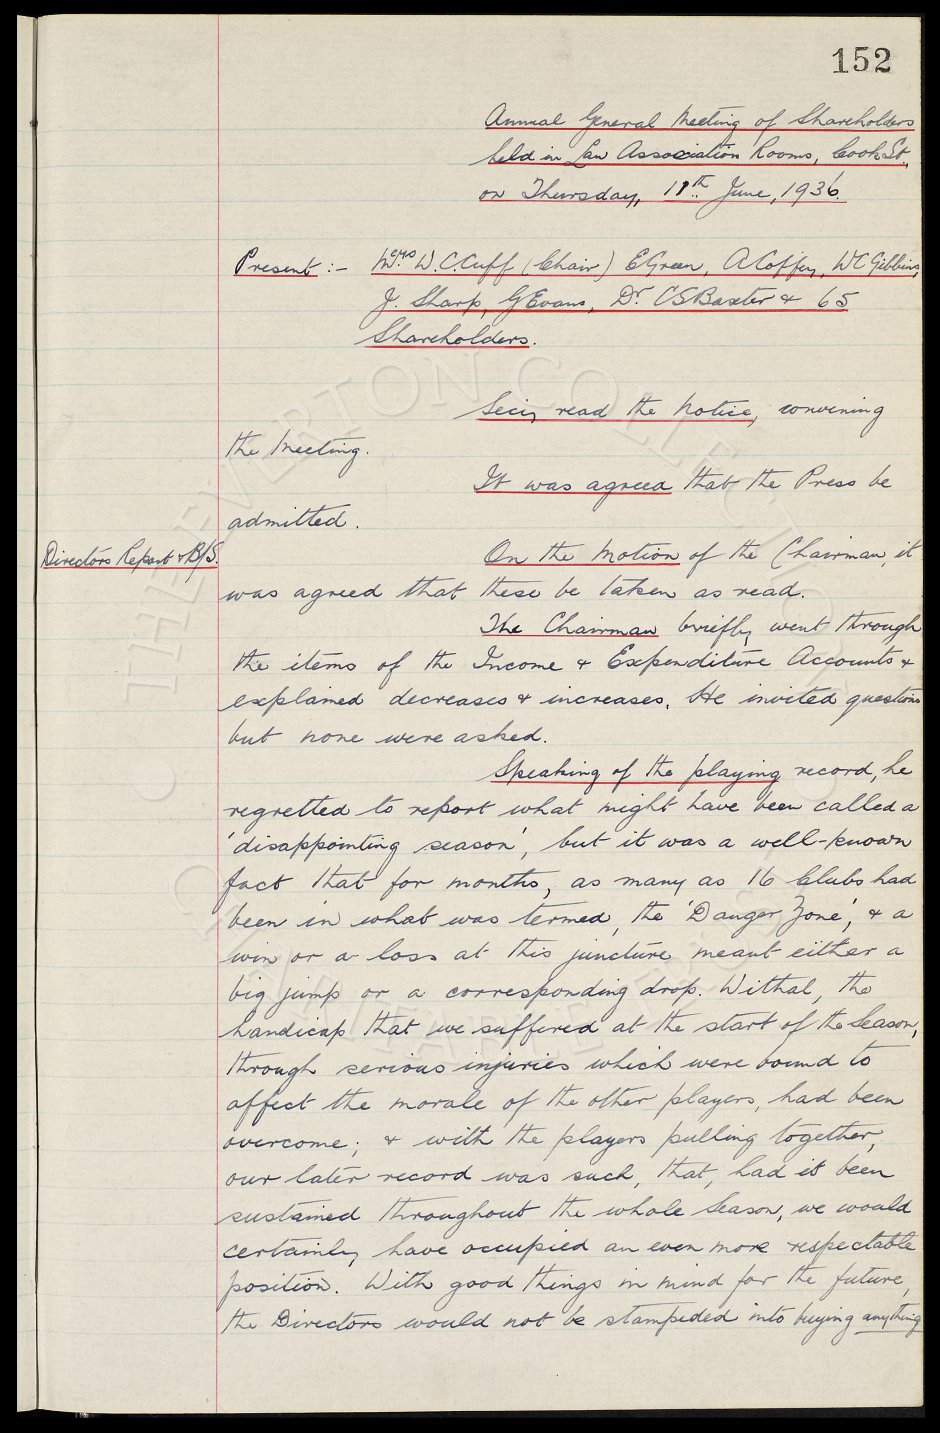 152
Annual General Meeting of Shareholders
held in Law Association Rooms, Cook St.,
on Thursday, 11th June, 1936.
Present :- Messrs W.C. Cuff (Chair) E Green, A Coffey, W C Gibbins,
J. Sharp, G Evans, Dr C S Baxter & 65
Shareholders.
Secy read the Notice, convening
the Meeting.
It was agreed that the Press be
admitted.
Directors Report & B/S.
On the Motion of the Chairman, it
was agreed that these be taken as read.
The Chairman briefly went through
the items of the Income & Expenditure Accounts &
explained decreases & increases. He invited questions
but none were asked.
Speaking of the playing record, he
regretted to report what might have been called a
'disappointing season', but it was a well-known
fact that for months, as many as 16 Clubs had
been in what was termed, the 'Danger Zone', & a
win or a loss at this juncture meant either a
big jump or a corresponding drop. Withal, the
handicap that we suffered at the start of the Season,
through serious injuries which were bound to
affect the morale of the other players, had been
overcome; & with the players pulling together,
our later record was such, that, had it been
sustained throughout the whole Season, we would
certainly have occupied an even more respectable
position. With good things in mind for the future,
the Directors would not be stampeded into buying anything
THE EVERTON COLLECTION
CHARITABLE TRUST